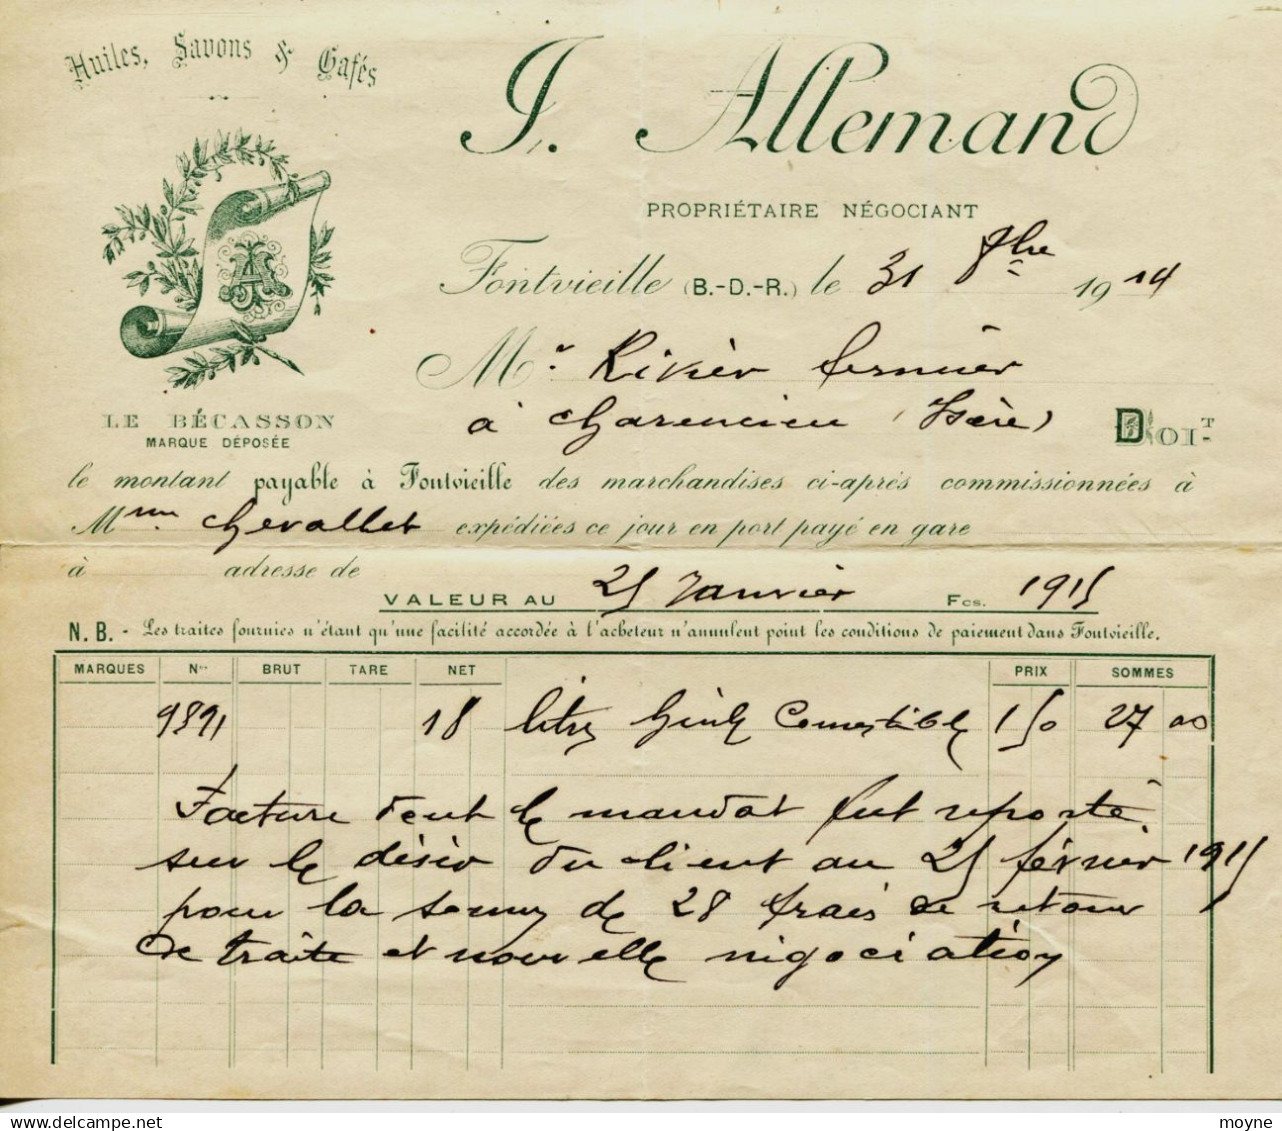 Huiles, Savons & Cafés
J. Allemand
PROPRIÉTAIRE NÉGOCIANT
Fontvieille (B.-D.-R.) le 31 1914
Mr. Rivier fermier
à Charencieu (Isère) DOIT
LE BÉCASSON
MARQUE DÉPOSÉE
le montant payable à Fontvieille des marchandises ci-après commissionnées à
Mme Chevallet expédiées ce jour en port payé en gare
à adresse de
VALEUR AU 25 Janvier Fcs. 1915
N. B. - Les traites fournies n'étant qu'une facilité accordée à l'acheteur n'annulent point les conditions de paiement dans Fontvieille.
MARQUES Nos BRUT TARE NET PRIX SOMMES
9891 18 litres Comestible 1 50 27 00
Facture dont le mandat fut reporté
sur le désir du client au 25 février 1915
pour la somme de 28 frais de retour
de traite et nouvelle négociation
delcampe.net
moyne